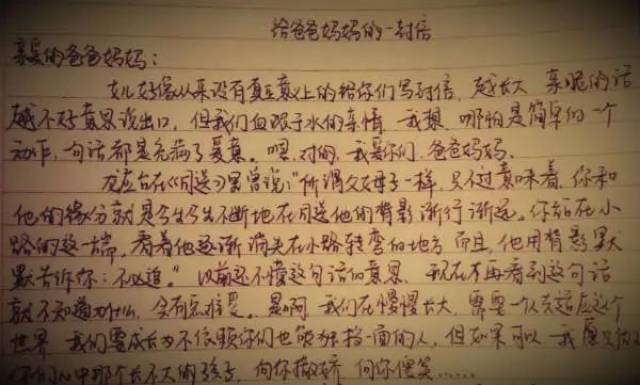 给爸爸妈妈的一封信
亲爱的爸爸妈妈：
女儿好像从来没有真正意义上的给你们写封信，越长大，亲昵的话
越不好意思说出口，但我们血浓于水的亲情，我想，哪怕是简单的一个
动作，一句话都是充满了爱意。嗯，对的，我爱你们，爸爸妈妈。
龙应台在《目送》里曾说："所谓父母子一样，只不过意味着，你和
他的缘分就是今生今世不断地在目送他的背影渐行渐远。你站在小
路的这一端，看着他逐渐消失在小路转弯的地方，而且，他用背影默
默告诉你：不必追。"以前还不懂这句话的意思，现在再看到这句话
就不知道为什么，会有点难受。是啊，我们在慢慢长大，需要一个人去适应这个
世界，我们要成长为不依赖你们也能独挡一面的人，但如果可以，我愿
心中那个长不大的孩子，向你撒娇，向你傻笑……